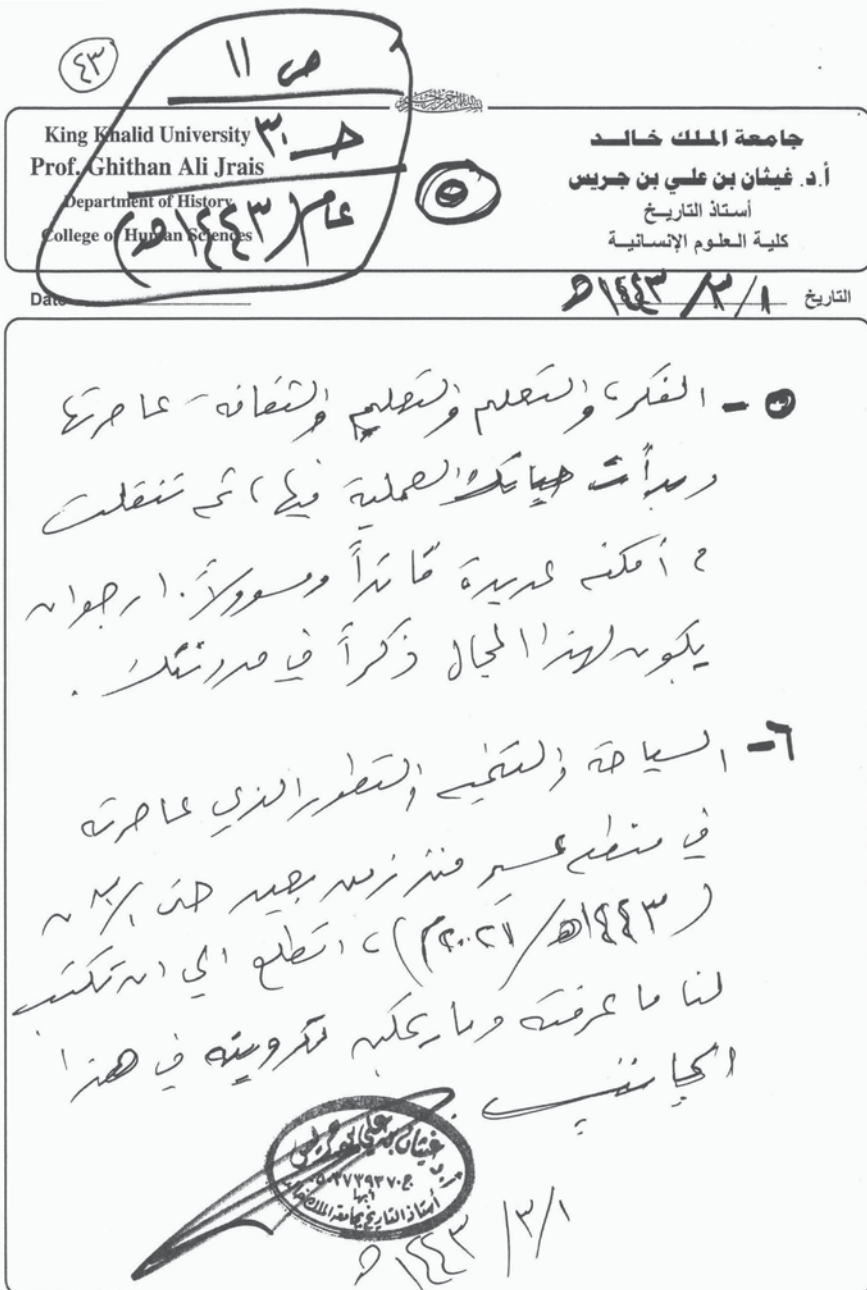 ٤٣
ص ١١
ح ٣٠
عام (١٤٤٣هـ)
King Khalid University
Prof. Ghithan Ali Jrais
Department of History
College of Human Sciences
٥
جامعة الملك خالد
أ.د. غيثان بن علي بن جريس
أستاذ التاريخ
كلية العلوم الإنسانية
Date
التاريخ ١/٣/١٤٤٣هـ
٥ - الفكر، والتعلم والتعليم والثقافة عاصرتها
وبدأت حياتك العملية فيها، ثم تنقلت
أمكنه عديدة قائداً ومسوولاً. ارجوان
يكون لهذا المجال ذكراً في مدونتك.
٦- السياحة والتطور الذي عاصرته
في عسير منذ زمن بعيد حتى
(١٤٤٣هـ/٢٠٢١م)، اتطلع الى ان تكتب
لنا ما عرفته وما يمكن تدوينه في هذا
الجانب
غيثان بن علي بن جريس
أبها
أستاذ التاريخ بجامعة الملك خالد
١/٣/١٤٤٣هـ